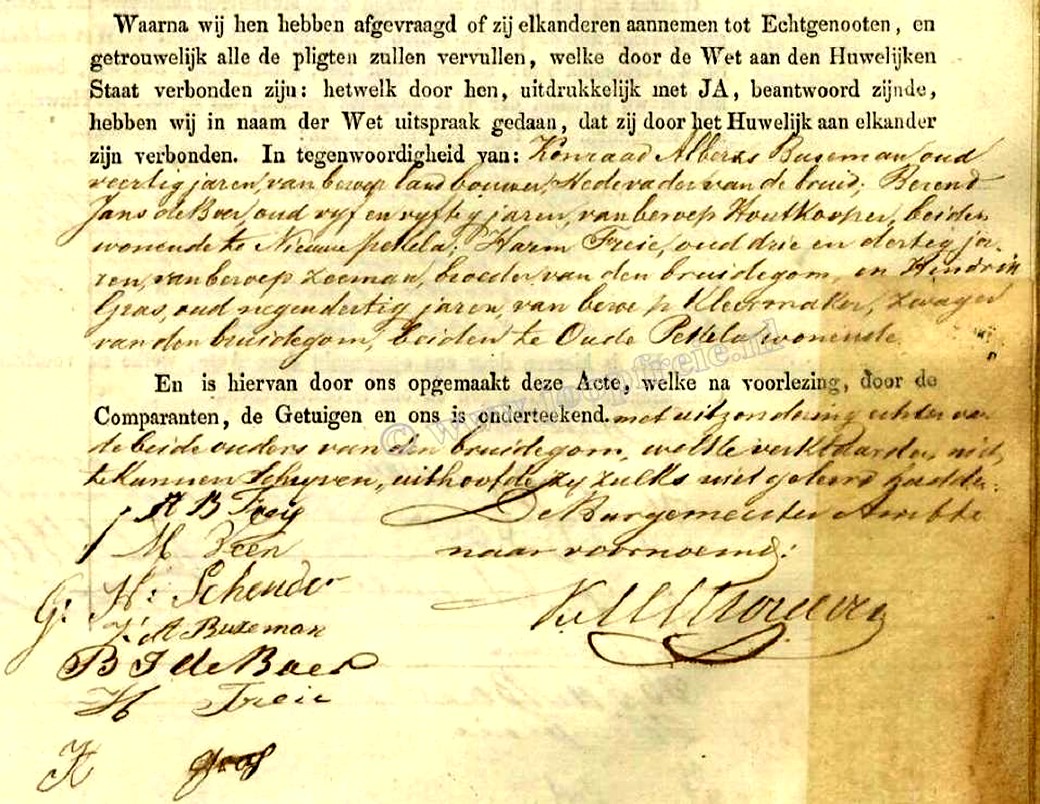 Waarna wij hen hebben afgevraagd of zij elkanderen aannemen tot Echtgenooten, en
getrouwelijk alle de pligten zullen vervullen, welke door de Wet aan den Huwelijken
Staat verbonden zijn: hetwelk door hen, uitdrukkelijk met JA, beantwoord zijnde,
hebben wij in naam der Wet uitspraak gedaan, dat zij door het Huwelijk aan elkander
zijn verbonden. In tegenwoordigheid van: Konraad Alberts Buseman, oud
veertig jaren, van beroep landbouwer, stedevader van de bruid; Berend
Jans de Boer, oud vyf en vyftig jaren, van beroep Houtkooper, beiden
wonende te Nieuwe pekela; Harm Freie, oud drie en dertig ja-
ren, van beroep zeeman, broeder van den bruidegom, en Hindrik
Gras, oud negendertig jaren, van beroep Kleermaker, zwager
van den bruidegom, beiden te Oude Pekela wonende.
En is hiervan door ons opgemaakt deze Acte, welke na voorlezing, door de
Comparanten, de Getuigen en ons is onderteekend. met uitzondering echter van
de beide ouders van den bruidegom, welke verklaarden niet
te kunnen schryven, uithoofde zy zulks niet geleerd hadden.
A B Freij De Burgemeester Ambte
M Veen naar voornoemd.
G. H. Schender
K. A Buseman
B J de Boer
H Freie
H Gras
© www.joopfreie.nl